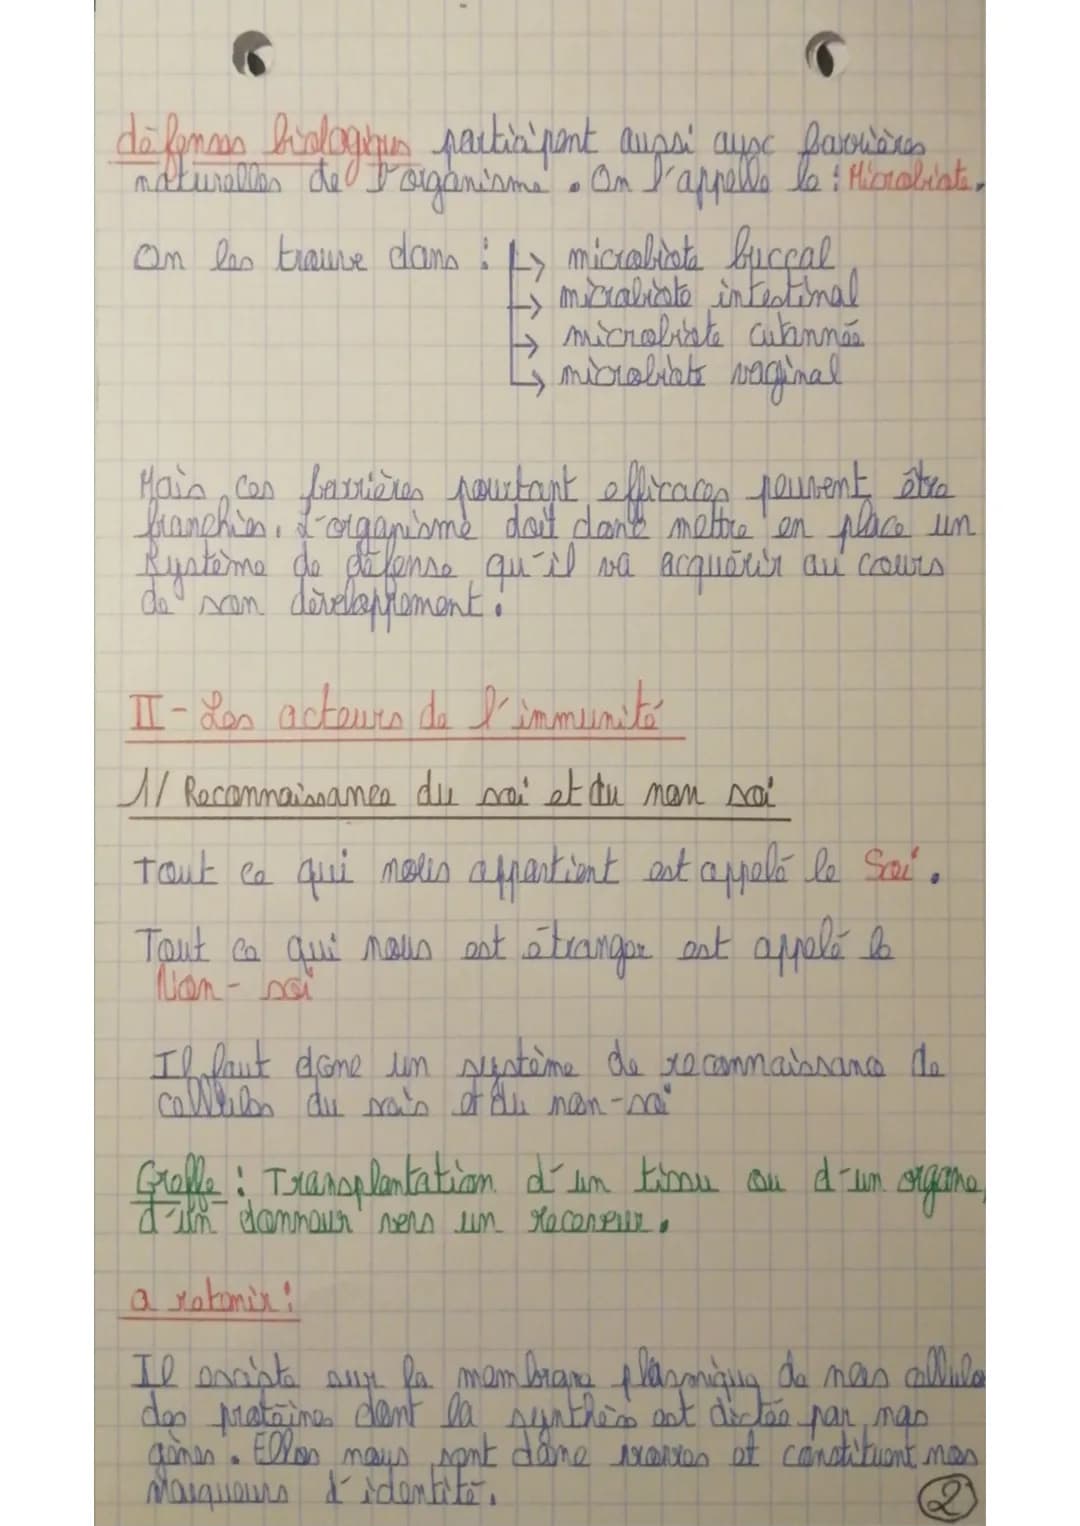 défenses biologiques participent aussi aux barrières
naturelles de l'organisme. On l'appelle le : Microbiote.
On les trouve dans : ↳ microbiote buccal
↳ microbiote intestinal
↳ microbiote cutannée
↳ microbiote vaginal
Mais ces barrières pourtant efficaces peuvent être
franchies. L'organisme doit donc mettre en place un
système de défense qu'il va acquérir au cours
de son développement.
II - Les acteurs de l'immunité
1/ Reconnaissance du soi et du non soi
Tout ce qui nous appartient est appelé le Soi.
Tout ce qui nous est étranger est appelé le
Non-soi
Il faut donc un système de reconnaissance de
cellules du sois et du non-soi
Greffe : Transplantation d'un tissu ou d'un organe,
d'un donneur vers un receveur.
a retenir :
Il existe sur la membrane plasmique de nos cellules
des protéines dont la synthèse est dictée par nos
gènes. Elles nous sont donc propres et constituent nos
Marqueurs d'identité.
2